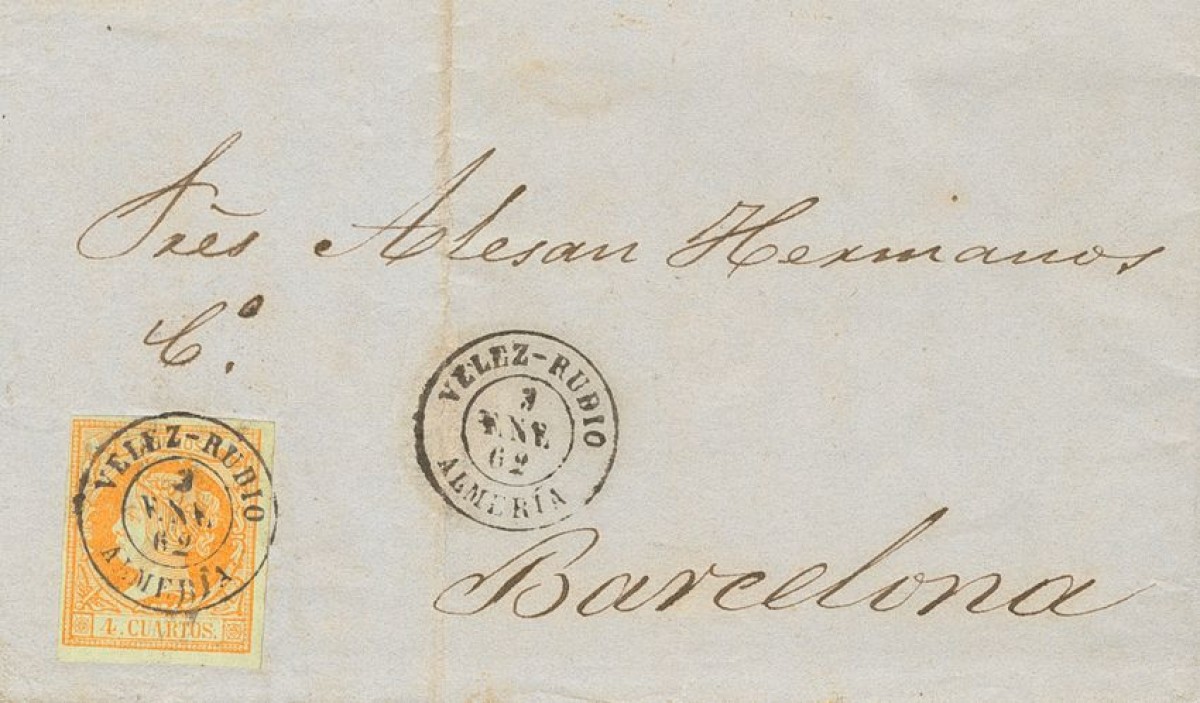 Srēs Alesan Hermanos
C.ª
VELEZ-RUBIO
3
ENE
62
ALMERÍA
VELEZ-RUBIO
3
ENE
62
ALMERÍA
4 CUARTOS.
Barcelona